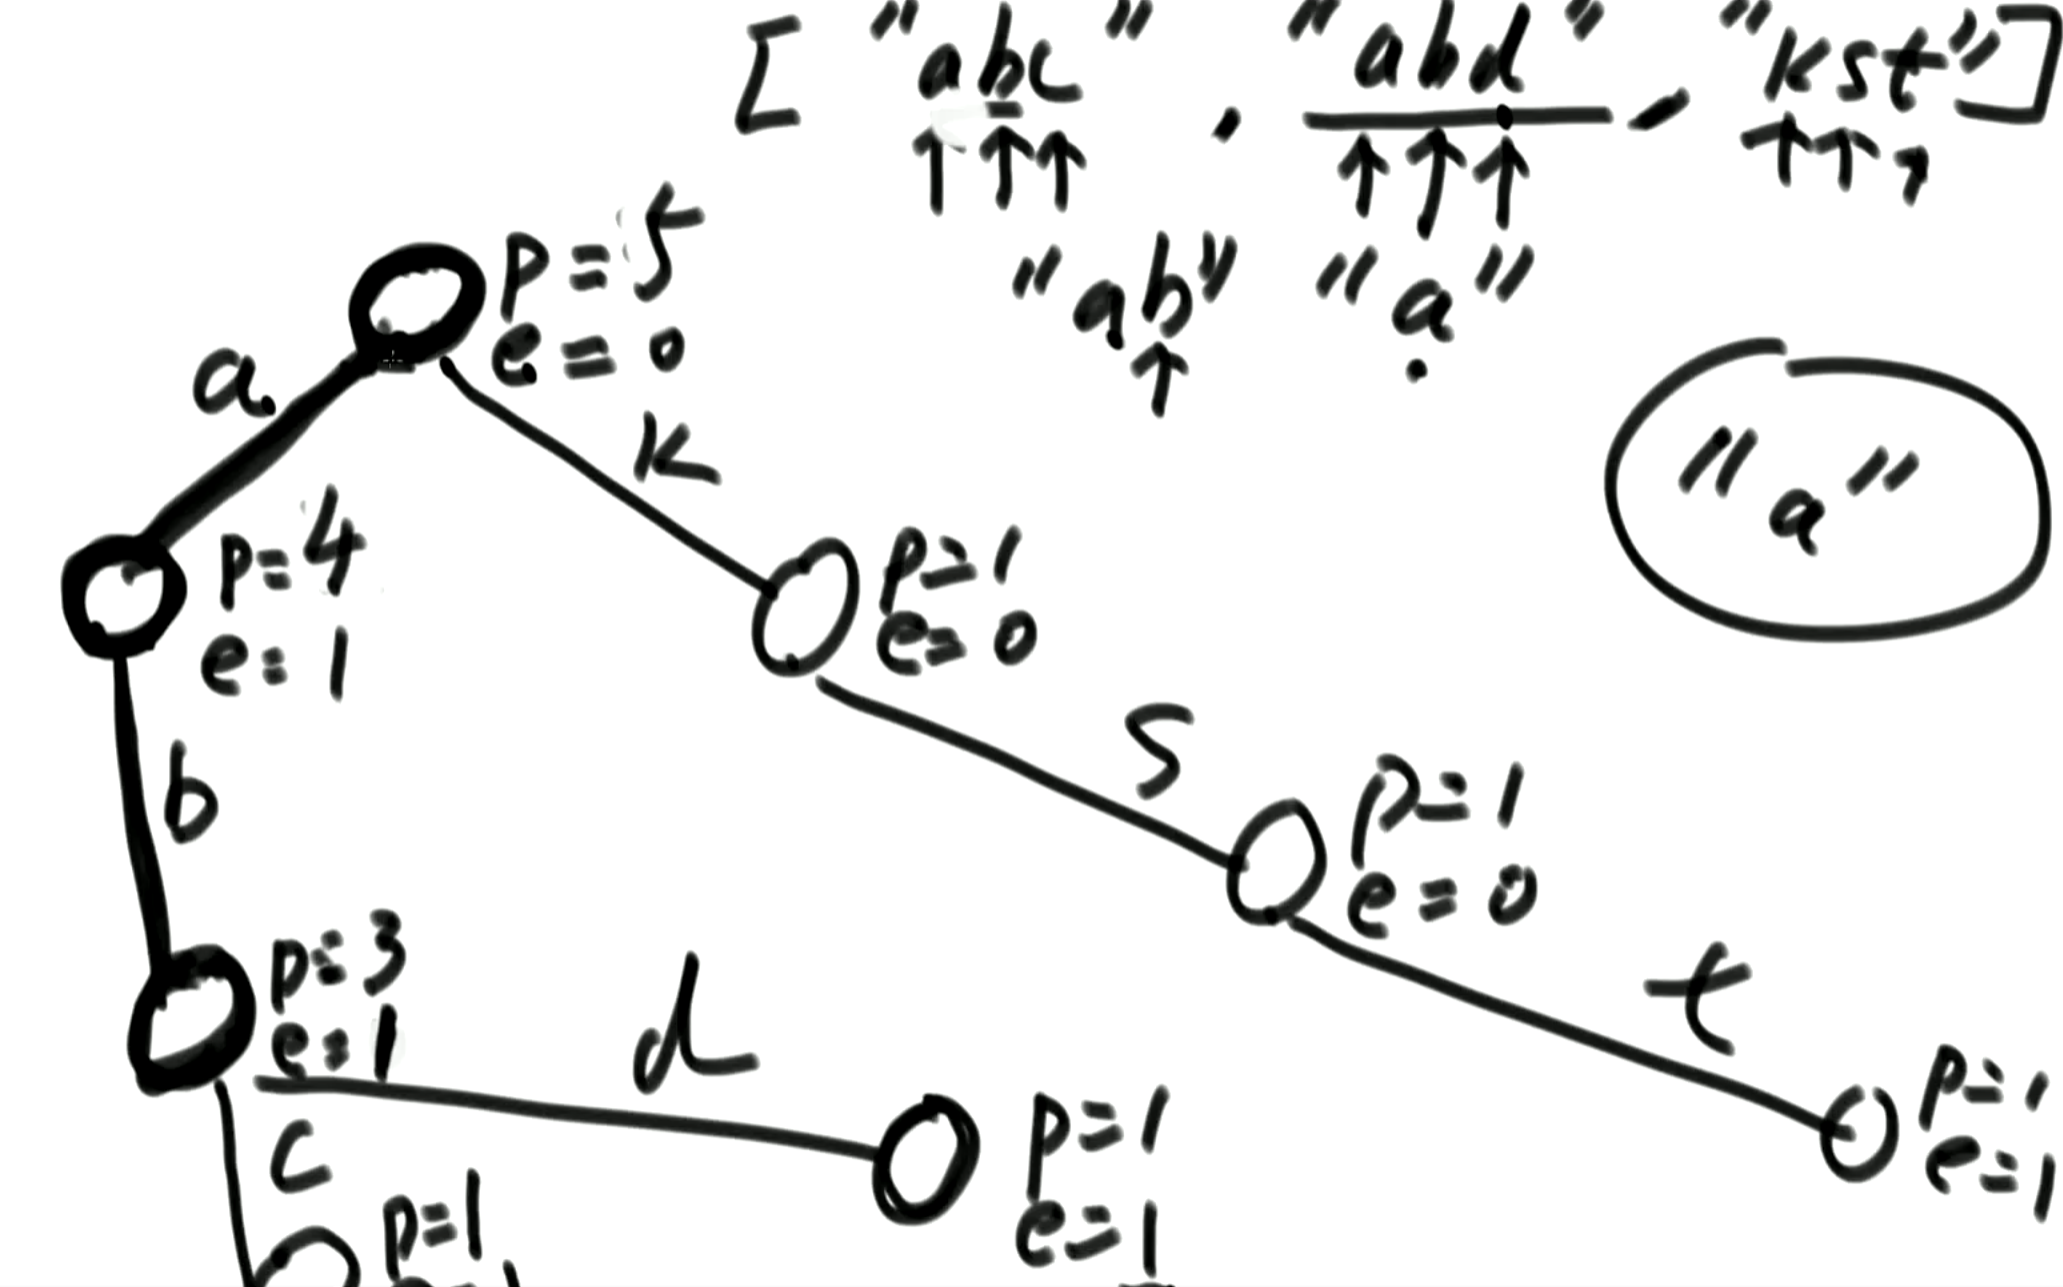 ["abc", "abd", "kst"]
"ab" "a"
p=5
e=0
a
k
"a"
p=4
e=1
p=1
e=0
b
s
p=1
e=0
p=3
e=1
d
t
c
p=1
e=1
p=1
e=1
p=1